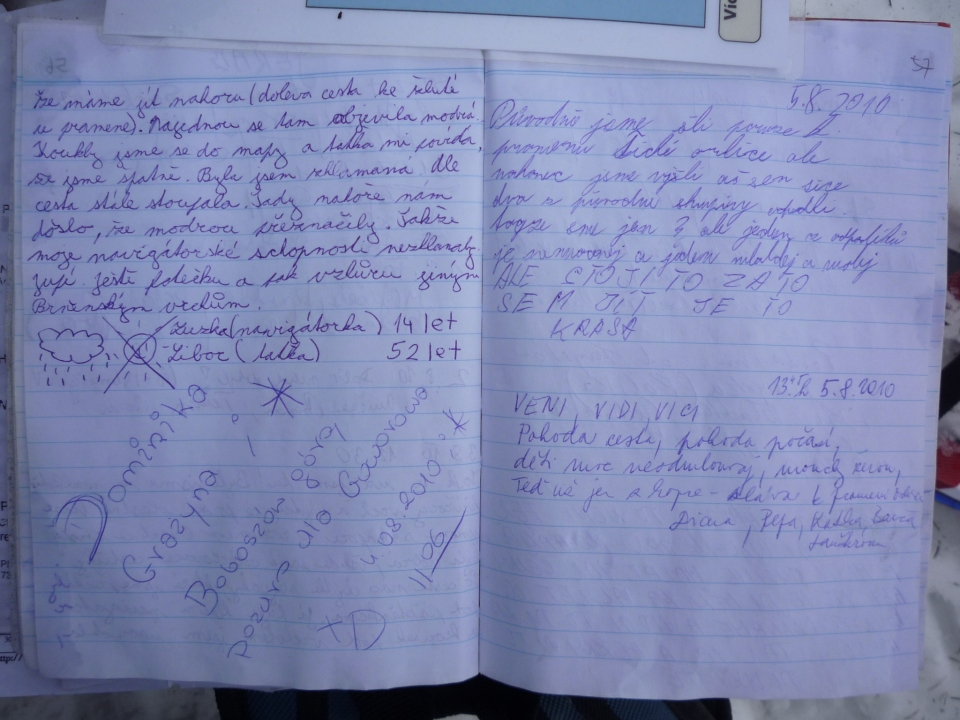 56
že máme jít nahoru (doleva cesta ke žluté
u pramene). Najednou se tam objevila modrá.
Koukly jsme se do mapy a taťka mi povídá,
že jsme špatně. Byla jsem zklamaná dle
cesta stále stoupala. Tady nahoře nám
došlo, že modrou přeznačily. Takže
moje navigátorské schopnosti nezklamaly.
ještě fotečku a pak vzhůru jiným
Brněnským vrchům.
Zuzka (navigátorka) 14 let
Libor (taťka) 52 let
Dominika
i
Grażyna
Boboszów góra
Pozura dla Gaworowa
4.08.2010
11.06
XD
57
5.8.2010
Původně jsme šli pouze k
prameni Tiché orlice ale
nakonec jsme vyšli až sem sice
dva z původní skupiny odpadli
takže sme jen 3 ale jeden z odpadlíků
je nemocnej a jeden mladej a malej
ALE STOJÍ TO ZA TO
SEM JÍT JE TO
KRÁSA
13.15h 5.8.2010
VENI, VIDI, VICI
Pohoda cesta, pohoda počasí,
děti moc neodmlouvaj,
Teď už jen z kopce - sláva k prameni
Diana, Pepa,